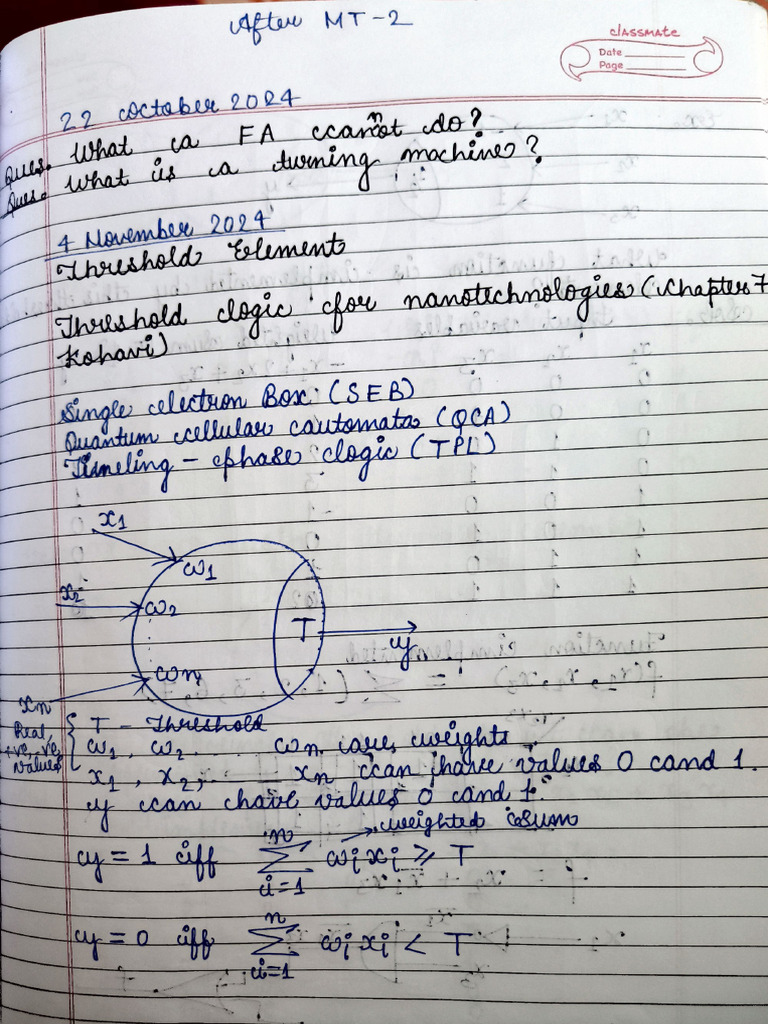 After MT-2
classmate
Date
Page
22 October 2024
Ques. What a FA cannot do?
Ques. What is a turning machine?
4 November 2024
Threshold Element
Threshold logic for nanotechnologies (Chapter 7
Kohavi)
Single electron Box (SEB)
Quantum cellular automata (QCA)
Tunneling - phase logic (TPL)
x1
ω1
x2
ω2
T
y
ωn
xn
T - Threshold
Real, +ve, -ve values
ω1, ω2, ... ωn are weights
x1, x2, ... xn can have values 0 and 1.
y can have values 0 and 1.
weighted sum
y = 1 iff n Σ i=1 ωi xi ≥ T
y = 0 iff n Σ i=1 ωi xi < T